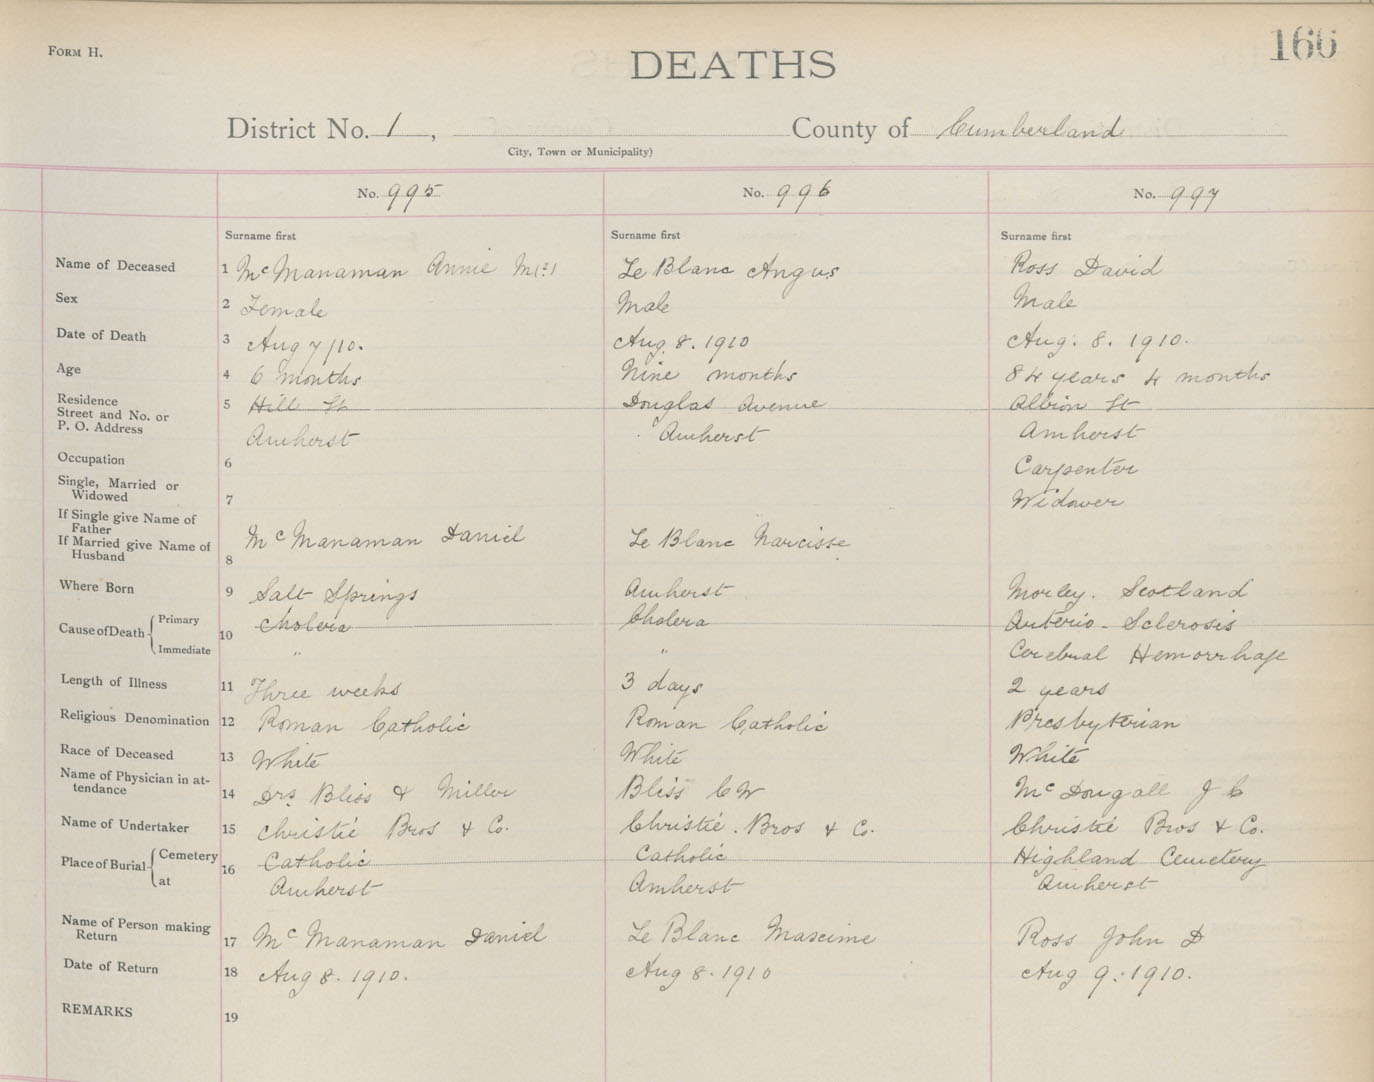 FORM H.
166
DEATHS
District No. 1, County of Cumberland
City, Town or Municipality)
No. 995 No. 996 No. 997
Surname first Surname first Surname first
Name of Deceased 1 McManaman Annie Le Blanc Angus Ross David
Sex 2 Female Male Male
Date of Death 3 Aug 7/10. Aug. 8. 1910 Aug. 8. 1910.
Age 4 6 months Nine months 84 years 4 months
Residence 5 Hill St Douglas Avenue Albion St
Street and No. or
P. O. Address Amherst Amherst Amherst
Occupation 6 Carpenter
Single, Married or
Widowed 7 Widower
If Single give Name of
Father
If Married give Name of
Husband 8 McManaman Daniel Le Blanc Narcisse
Where Born 9 Salt Springs Amherst Morley. Scotland
Cause of Death Primary 10 Cholera Cholera Arterio-Sclerosis
Immediate " " Cerebral Hemorrhage
Length of Illness 11 Three weeks 3 days 2 years
Religious Denomination 12 Roman Catholic Roman Catholic Presbyterian
Race of Deceased 13 White White White
Name of Physician in at-
tendance 14 Drs Bliss & Miller Bliss C W McDougall J C
Name of Undertaker 15 Christie Bros & Co. Christie. Bros & Co. Christie Bros & Co.
Place of Burial Cemetery 16 Catholic Catholic Highland Cemetery
at Amherst Amherst Amherst
Name of Person making
Return 17 McManaman Daniel Le Blanc Maxcime Ross John D
Date of Return 18 Aug 8. 1910. Aug 8. 1910 Aug 9. 1910.
REMARKS 19